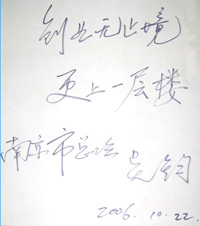 创业无止境
更上一层楼
南京市总会
2006.10.22.